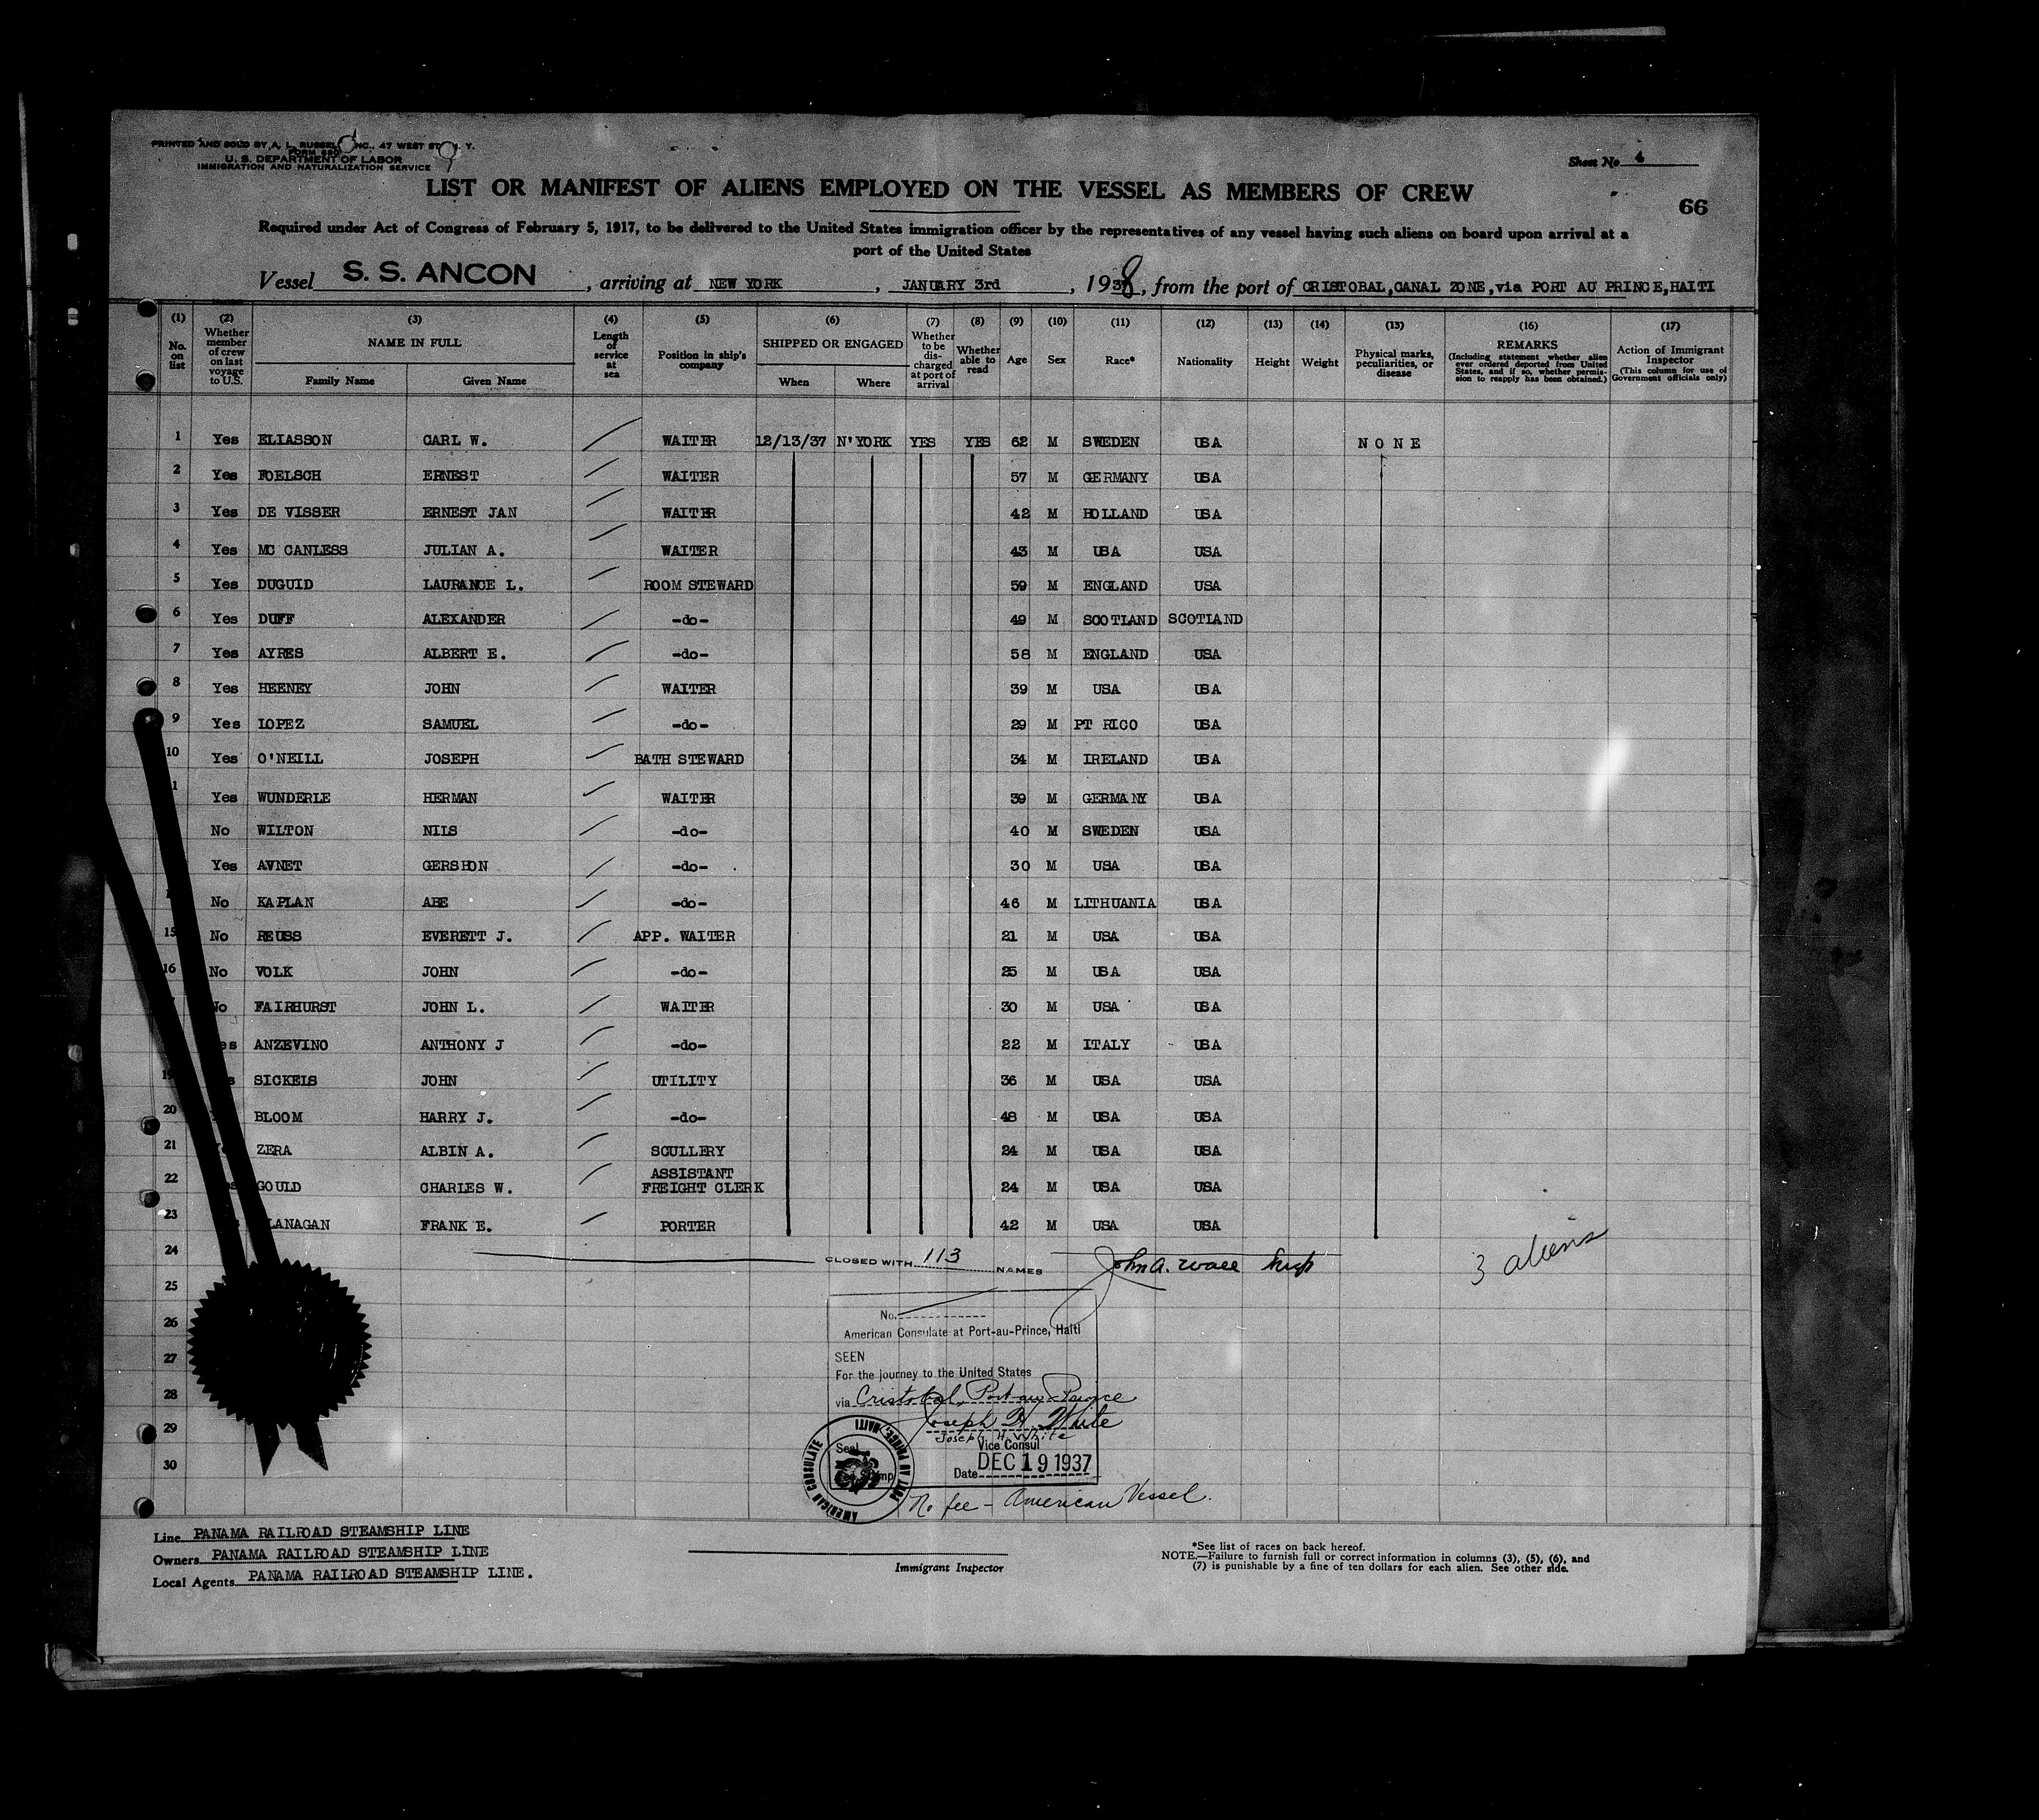 PRINTED AND SOLD BY A. L. RUSSEL INC., 47 WEST ST. N. Y.
FORM 680
U. S. DEPARTMENT OF LABOR
IMMIGRATION AND NATURALIZATION SERVICE
Sheet No 4
LIST OR MANIFEST OF ALIENS EMPLOYED ON THE VESSEL AS MEMBERS OF CREW
66
Required under Act of Congress of February 5, 1917, to be delivered to the United States immigration officer by the representatives of any vessel having such aliens on board upon arrival at a
port of the United States
Vessel S. S. ANCON, arriving at NEW YORK, JANUARY 3rd, 1938, from the port of CRISTOBAL, CANAL ZONE, via PORT AU PRINCE, HAITI
(1) No. on list
(2) Whether member of crew on last voyage to U.S.
(3) NAME IN FULL Family Name Given Name
(4) Length of service at sea
(5) Position in ship's company
(6) SHIPPED OR ENGAGED When Where
(7) Whether to be discharged at port of arrival
(8) Whether able to read
(9) Age
(10) Sex
(11) Race*
(12) Nationality
(13) Height
(14) Weight
(15) Physical marks, peculiarities, or disease
(16) REMARKS (Including statement whether alien ever ordered deported from United States, and if so, whether permission to reapply has been obtained.)
(17) Action of Immigrant Inspector (This column for use of Government officials only)
1 Yes ELIASSON CARL W. WAITER 12/13/37 N'YORK YES YES 62 M SWEDEN USA NONE
2 Yes FOELSCH ERNEST WAITER 57 M GERMANY USA
3 Yes DE VISSER ERNEST JAN WAITER 42 M HOLLAND USA
4 Yes MC CANLESS JULIAN A. WAITER 43 M USA USA
5 Yes DUGUID LAURANCE L. ROOM STEWARD 59 M ENGLAND USA
6 Yes DUFF ALEXANDER -do- 49 M SCOTLAND SCOTLAND
7 Yes AYRES ALBERT E. -do- 58 M ENGLAND USA
8 Yes HEENEY JOHN WAITER 39 M USA USA
9 Yes LOPEZ SAMUEL -do- 29 M PT RICO USA
10 Yes O'NEILL JOSEPH BATH STEWARD 34 M IRELAND USA
1 Yes WUNDERLE HERMAN WAITER 39 M GERMANY USA
No WILTON NILS -do- 40 M SWEDEN USA
Yes AVNET GERSHON -do- 30 M USA USA
No KAPLAN ABE -do- 46 M LITHUANIA USA
15 No REUSS EVERETT J. APP. WAITER 21 M USA USA
16 No VOLK JOHN -do- 25 M USA USA
No FAIRHURST JOHN L. WAITER 30 M USA USA
es ANZEVINO ANTHONY J -do- 22 M ITALY USA
19 s SICKELS JOHN UTILITY 36 M USA USA
20 BLOOM HARRY J. -do- 48 M USA USA
21 ZERA ALBIN A. SCULLERY 24 M USA USA
22 GOULD CHARLES W. ASSISTANT FREIGHT CLERK 24 M USA USA
23 LANAGAN FRANK E. PORTER 42 M USA USA
24 CLOSED WITH 113 NAMES
3 aliens
25
26
27
28
29
30
No.
American Consulate at Port-au-Prince, Haiti
SEEN
For the journey to the United States
via Cristobal, Port-au-Prince
Joseph H. White
Joseph H. White
Vice Consul
Seal
Date DEC 19 1937
AMERICAN CONSULATE PORT AU PRINCE, HAITI
No fee - American Vessel.
Line PANAMA RAILROAD STEAMSHIP LINE
Owners PANAMA RAILROAD STEAMSHIP LINE
Local Agents PANAMA RAILROAD STEAMSHIP LINE.
Immigrant Inspector
*See list of races on back hereof.
NOTE.—Failure to furnish full or correct information in columns (3), (5), (6), and
(7) is punishable by a fine of ten dollars for each alien. See other side.